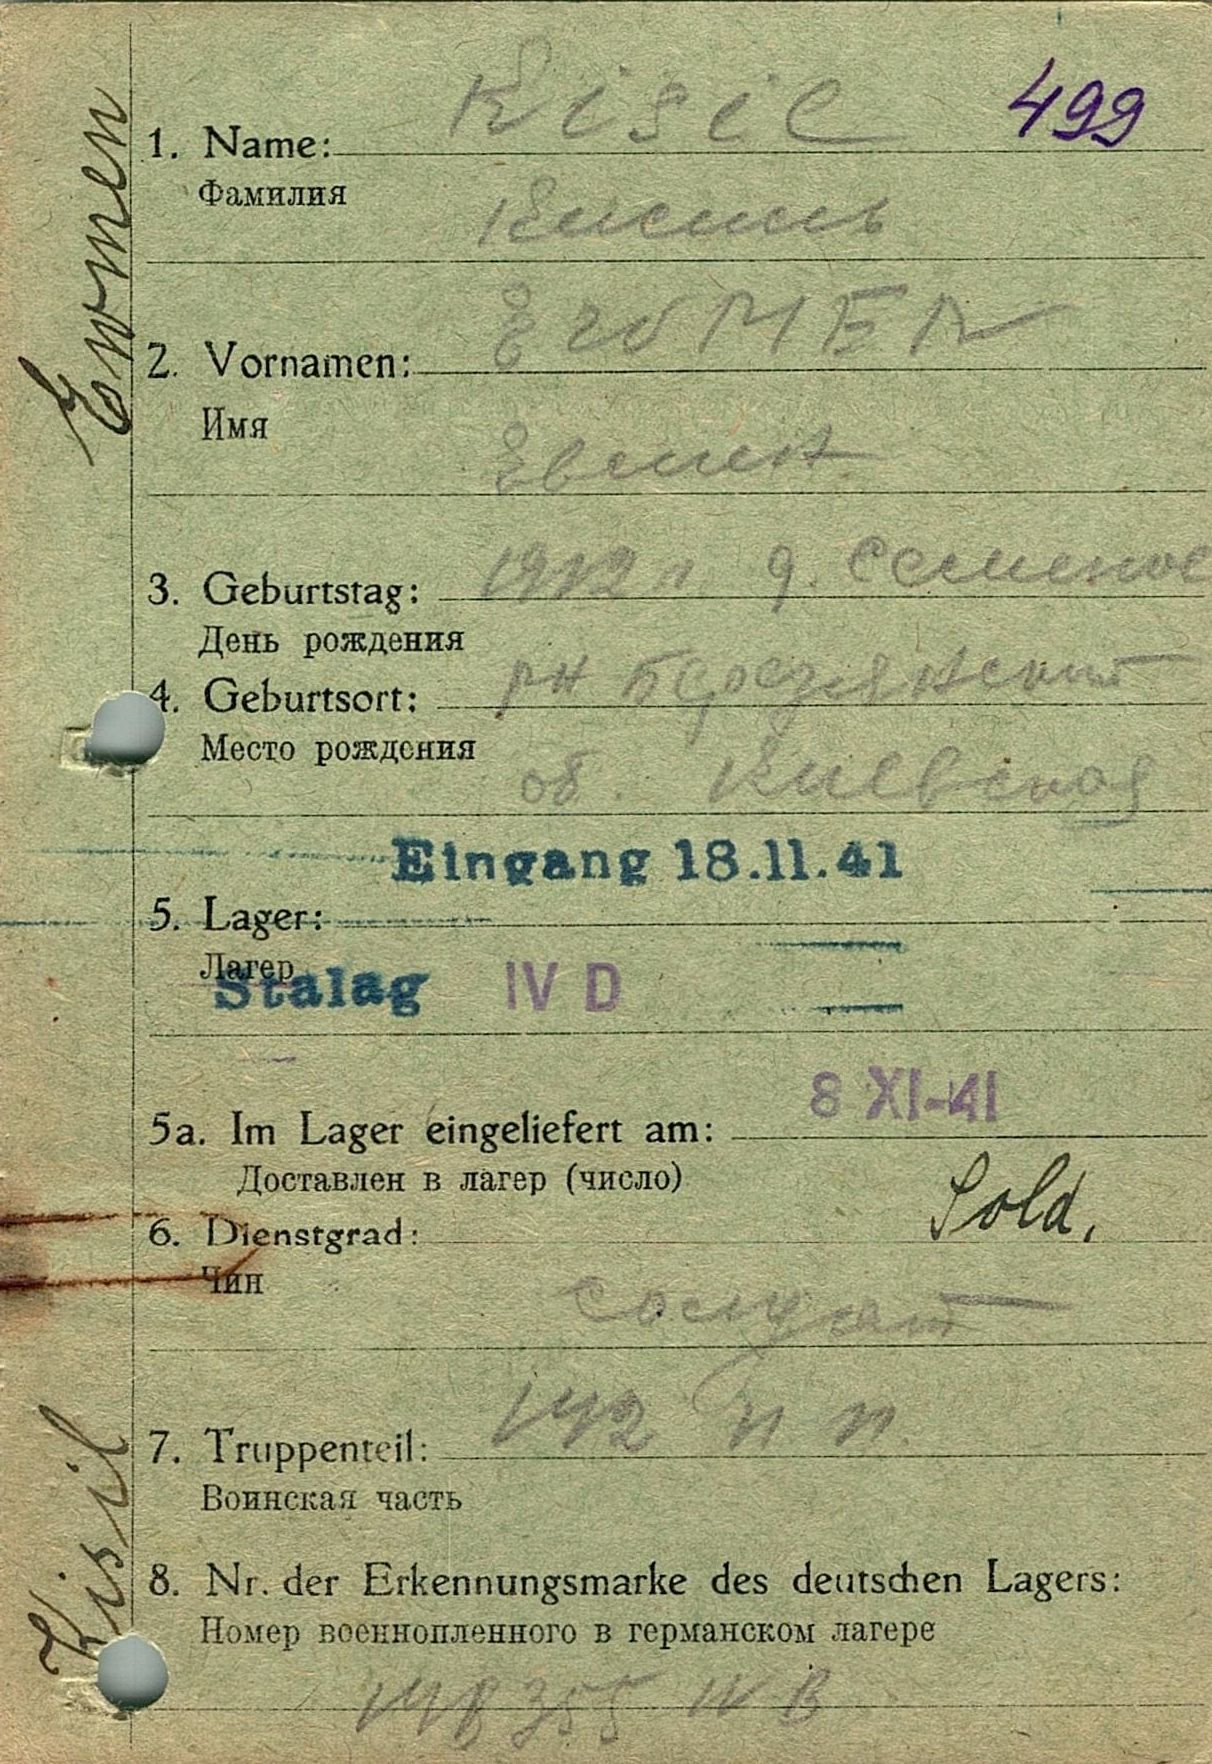 499
Kisil
1. Name:
Фамилия
Кисиль
2. Vornamen:
Имя
Евмен
3. Geburtstag: 1912 г д. Семенов
День рождения
4. Geburtsort: рн Березянский
Место рождения
об. Киевская
Eingang 18.11.41
5. Lager:
Лагер
Stalag IV D
8 XI-41
5a. Im Lager eingeliefert am:
Доставлен в лагер (число)
Sold.
6. Dienstgrad:
Чин
солдат
7. Truppenteil: 142
Воинская часть
8. Nr. der Erkennungsmarke des deutschen Lagers:
Номер военнопленного в германском лагере
IV B
Kisil Ewmen